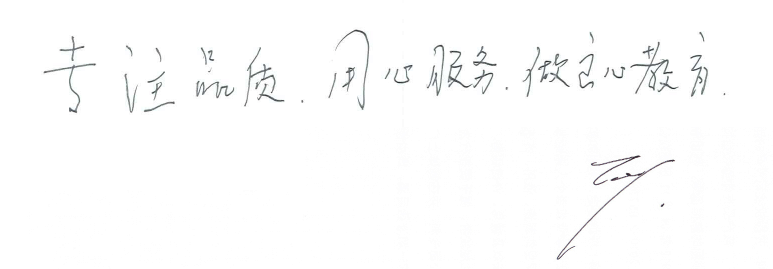 专注品质.用心服务.做良心教育.